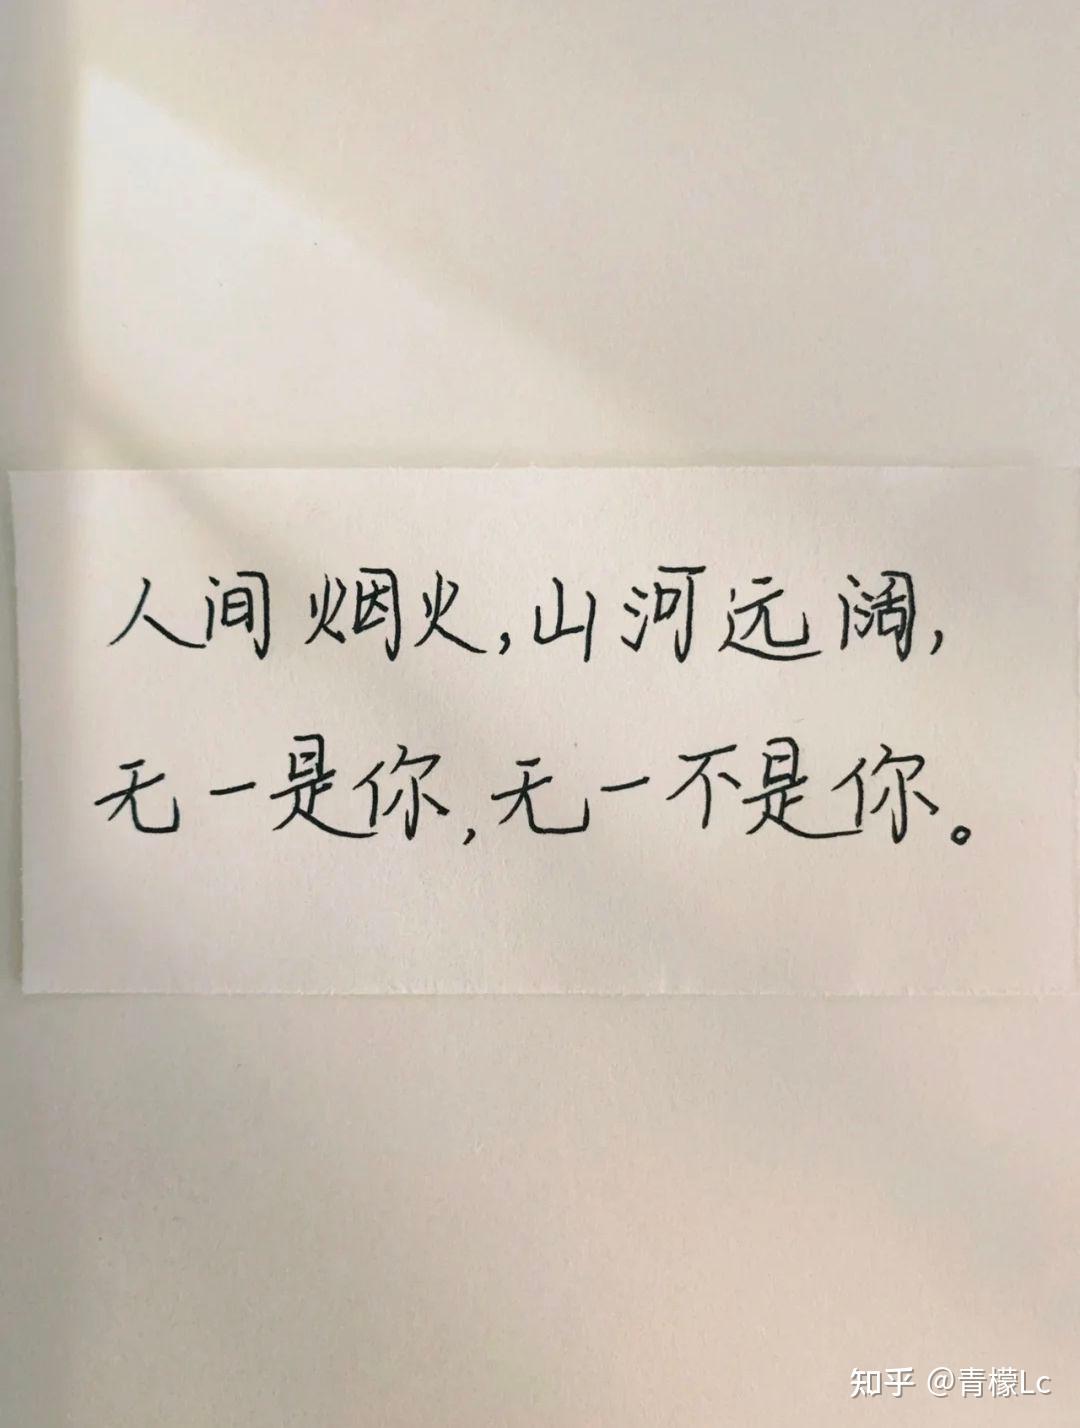 人间烟火,山河远阔,
无一是你,无一不是你。
知乎 @青檬Lc